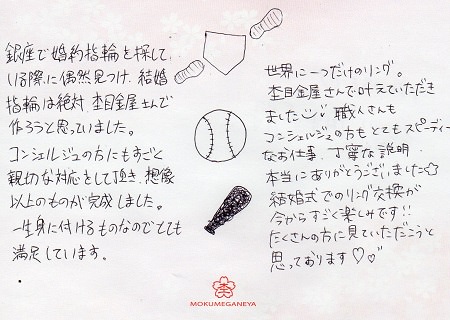 銀座で婚約指輪を探して
いる際に偶然見つけ、結婚
指輪は絶対 杢目金屋さんで
作ろうと思っていました。
コンシェルジュの方にもすごく
親切な対応をして頂き、想像
以上のものが完成しました。
一生身に付けるものなのでとても
満足しています。
世界に一つだけのリング。
杢目金屋さんで叶えていただき
ました 職人さんも
コンシェルジュの方もとてもスピーディー
なお仕事、丁寧な説明
本当にありがとうございました
結婚式でのリング交換が
今からすごく楽しみです!!
たくさんの方に見ていただこうと
思っております♡
MOKUMEGANEYA